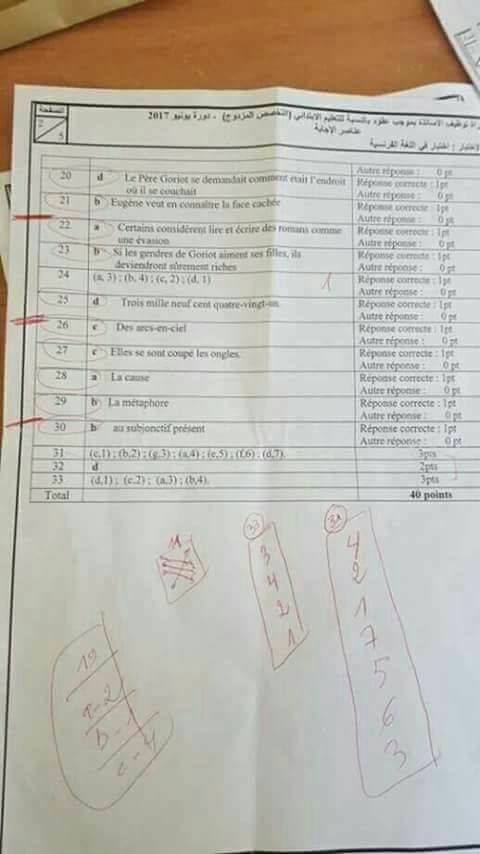 الصفحة
2
5
مباراة توظيف الأساتذة بموجب عقود بالنسبة للتعليم الابتدائي (التخصص المزدوج) - دورة يونيو 2017
عناصر الإجابة
الاختبار : اختبار في اللغة الفرنسية
Autre réponse : 0 pt
20 d Le Père Goriot se demandait comment était l'endroit Réponse correcte : 1pt
où il se couchait Autre réponse : 0 pt
21 b Eugène veut en connaître la face cachée Réponse correcte : 1pt
Autre réponse : 0 pt
22 a Certains considèrent lire et écrire des romans comme Réponse correcte : 1pt
une évasion Autre réponse : 0 pt
23 b Si les gendres de Goriot aiment ses filles, ils Réponse correcte : 1pt
deviendront sûrement riches Autre réponse : 0 pt
24 (a, 3) ; (b, 4) ; (c, 2) ; (d, 1) 1 Réponse correcte : 1pt
Autre réponse : 0 pt
25 d Trois mille neuf cent quatre-vingt-un. Réponse correcte : 1pt
Autre réponse : 0 pt
26 c Des arcs-en-ciel Réponse correcte : 1pt
Autre réponse : 0 pt
27 c Elles se sont coupé les ongles. Réponse correcte : 1pt
Autre réponse : 0 pt
28 a La cause Réponse correcte : 1pt
Autre réponse : 0 pt
29 b La métaphore Réponse correcte : 1pt
Autre réponse : 0 pt
30 b au subjonctif présent Réponse correcte : 1pt
Autre réponse : 0 pt
31 (c,1) ; (b,2) ; (g,3) ; (a,4) ; (e,5) ; (f,6) ; (d,7). 3pts
32 d 2pts
33 (d,1) ; (c,2) ; (a,3) ; (b,4). 3pts
Total 40 points
33
3
4
2
1
31
4
2
1
7
5
6
3
19
a-2
b-1
c-4